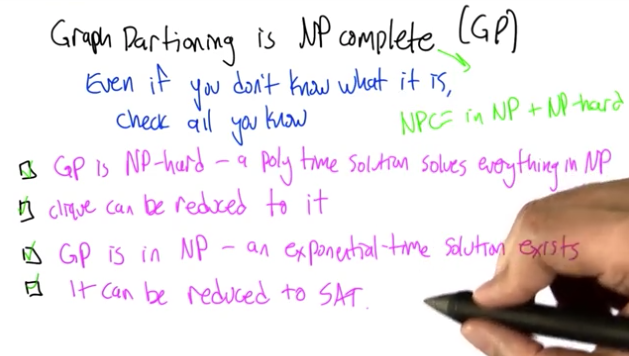 Graph Partioning is NP complete (GP)
Even if you don't know what it is,
check all you know
NPC = in NP + NP-hard
GP is NP-hard - a poly time solution solves everything in NP
clique can be reduced to it
GP is in NP - an exponential-time solution exists
It can be reduced to SAT.